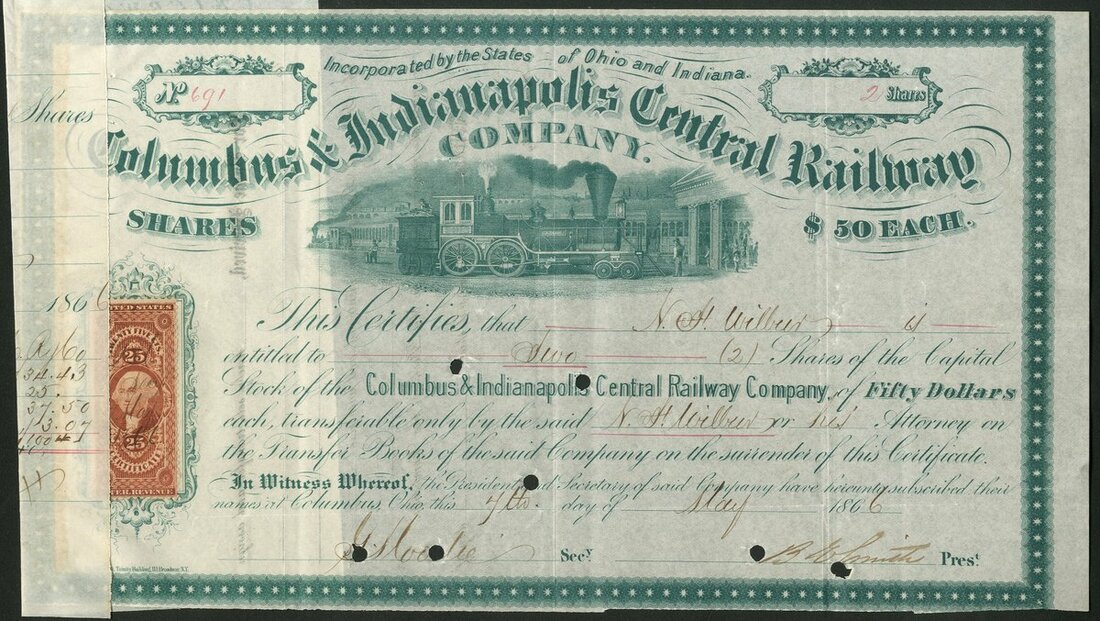 Incorporated by the States of Ohio and Indiana.
No 691
2 Shares
Shares
Columbus & Indianapolis Central Railway
COMPANY.
SHARES
$ 50 EACH.
1866
This Certifies, that N. H. Wilbur is
entitled to Two (2) Shares of the Capital
Stock of the Columbus & Indianapolis Central Railway Company, of Fifty Dollars
each, transferable only by the said N. H. Wilbur or his Attorney on
the Transfer Books of the said Company on the surrender of this Certificate.
In Witness Whereof, the President and Secretary of said Company have hereunto subscribed their
names at Columbus Ohio, this 7th day of May 1866
Secy
B. E. Smith Prest
UNITED STATES
TWENTY FIVE CTS.
25
25
CERTIFICATE
INTER. REVENUE
34.43
25.
37.50
3.07
Trinity Building, 111 Broadway N.Y.